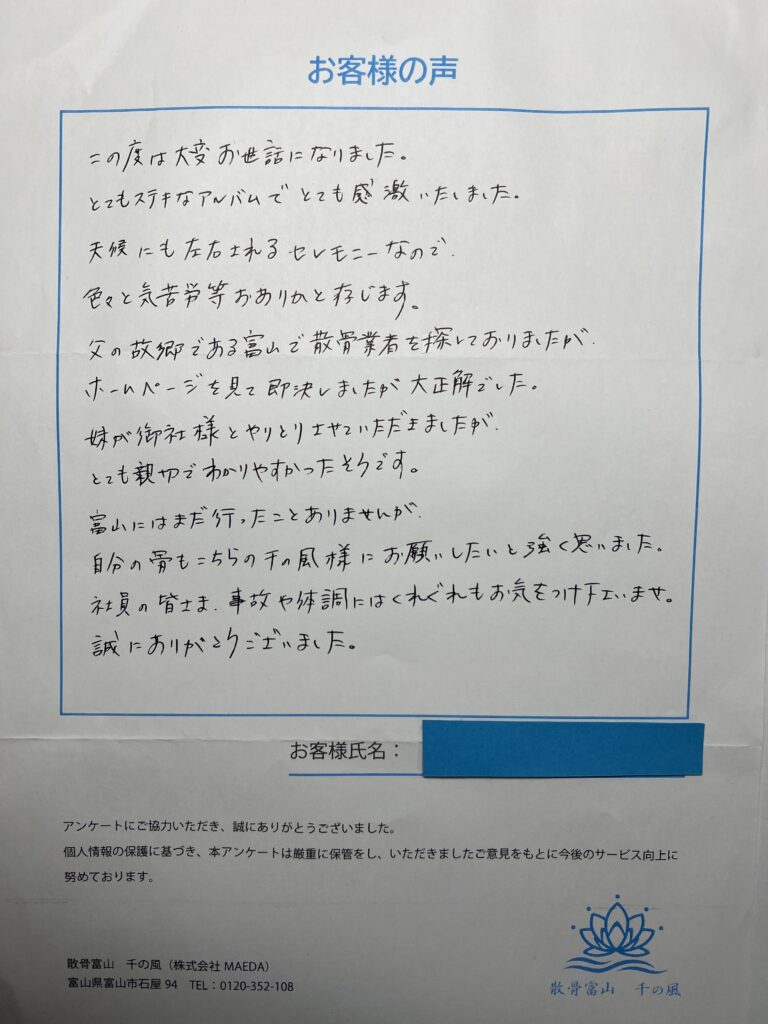 お客様の声
この度は大変お世話になりました。
とてもステキなアルバムでとても感激いたしました。
天候にも左右されるセレモニーなので、
色々と気苦労等おありかと存じます。
父の故郷である富山で散骨業者を探しておりましたが、
ホームページを見て即決しましたが大正解でした。
妹が御社様とやりとりさせていただきましたが、
とても親切でわかりやすかったそうです。
富山にはまだ行ったことありませんが、
自分の骨もこちらの千の風様にお願いしたいと強く思いました。
社員の皆さま、事故や体調にはくれぐれもお気をつけ下さいませ。
誠にありがとうございました。
お客様氏名：
アンケートにご協力いただき、誠にありがとうございました。
個人情報の保護に基づき、本アンケートは厳重に保管をし、いただきましたご意見をもとに今後のサービス向上に
努めております。
散骨富山　千の風（株式会社 MAEDA）
富山県富山市石屋 94　TEL：0120-352-108
散骨富山　千の風